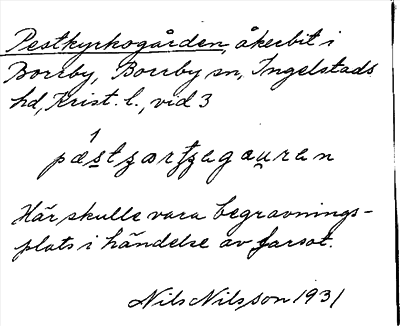 Pestkyrkogården, åkerbit i
Borrby, Borrby sn, Ingelstads
hd, Krist. l., vid 3
1
Här skulle vara begravnings-
plats i händelse av farsot.
Nils Nilsson 1931